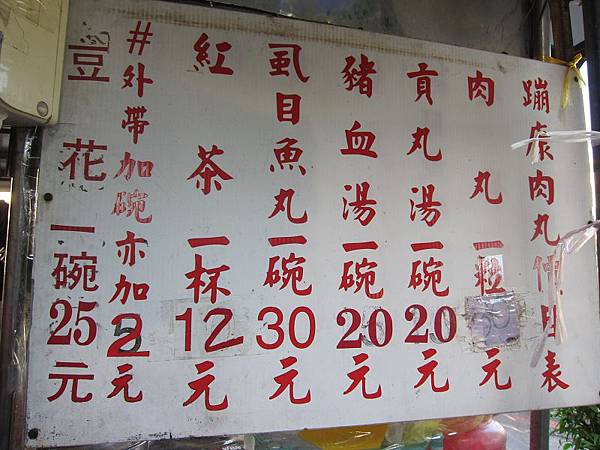 蹦康肉丸價目表
肉丸一粒 元
貢丸湯一碗20元
豬血湯一碗20元
虱目魚丸一碗30元
紅茶一杯12元
#外帶加碗亦加2元
豆花一碗25元